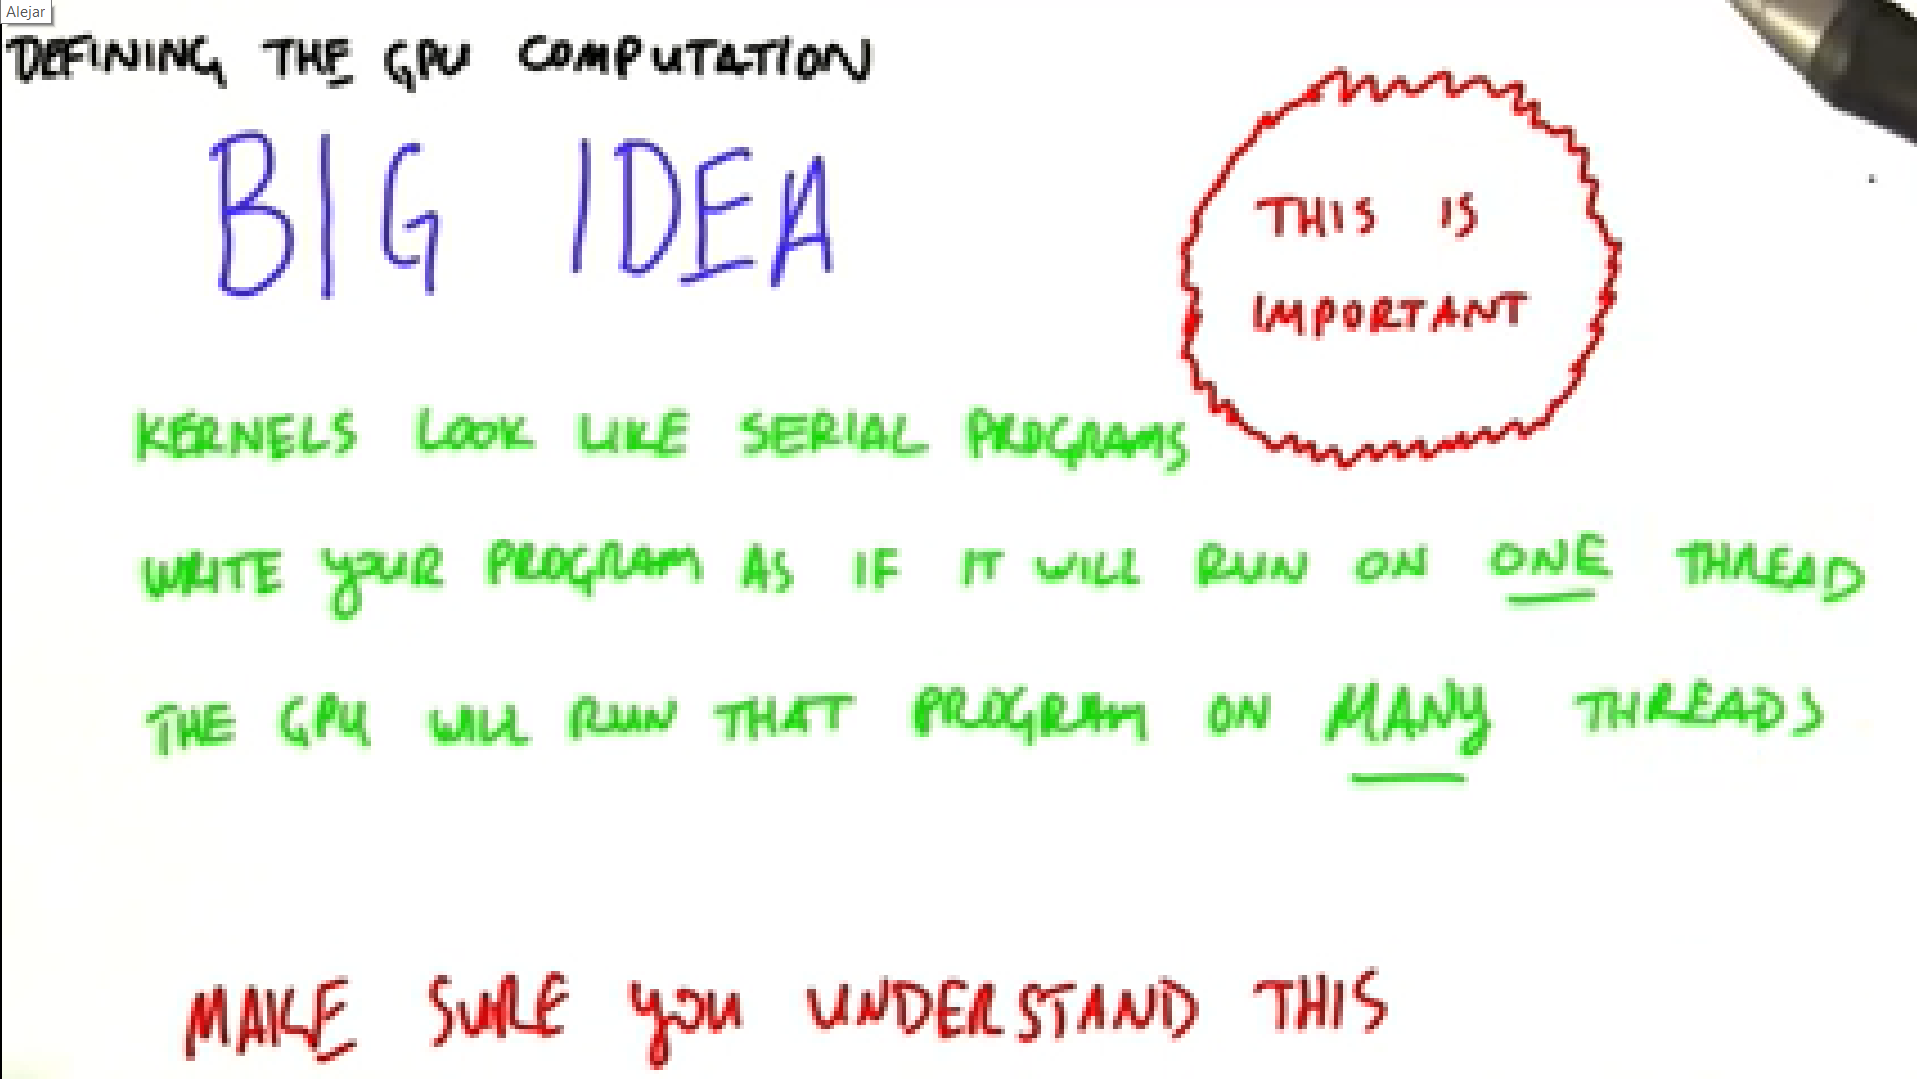 Alejar
DEFINING THE GPU COMPUTATION
BIG IDEA
THIS IS
IMPORTANT
KERNELS LOOK LIKE SERIAL PROGRAMS
WRITE YOUR PROGRAM AS IF IT WILL RUN ON ONE THREAD
THE GPU WILL RUN THAT PROGRAM ON MANY THREADS
MAKE SURE YOU UNDERSTAND THIS